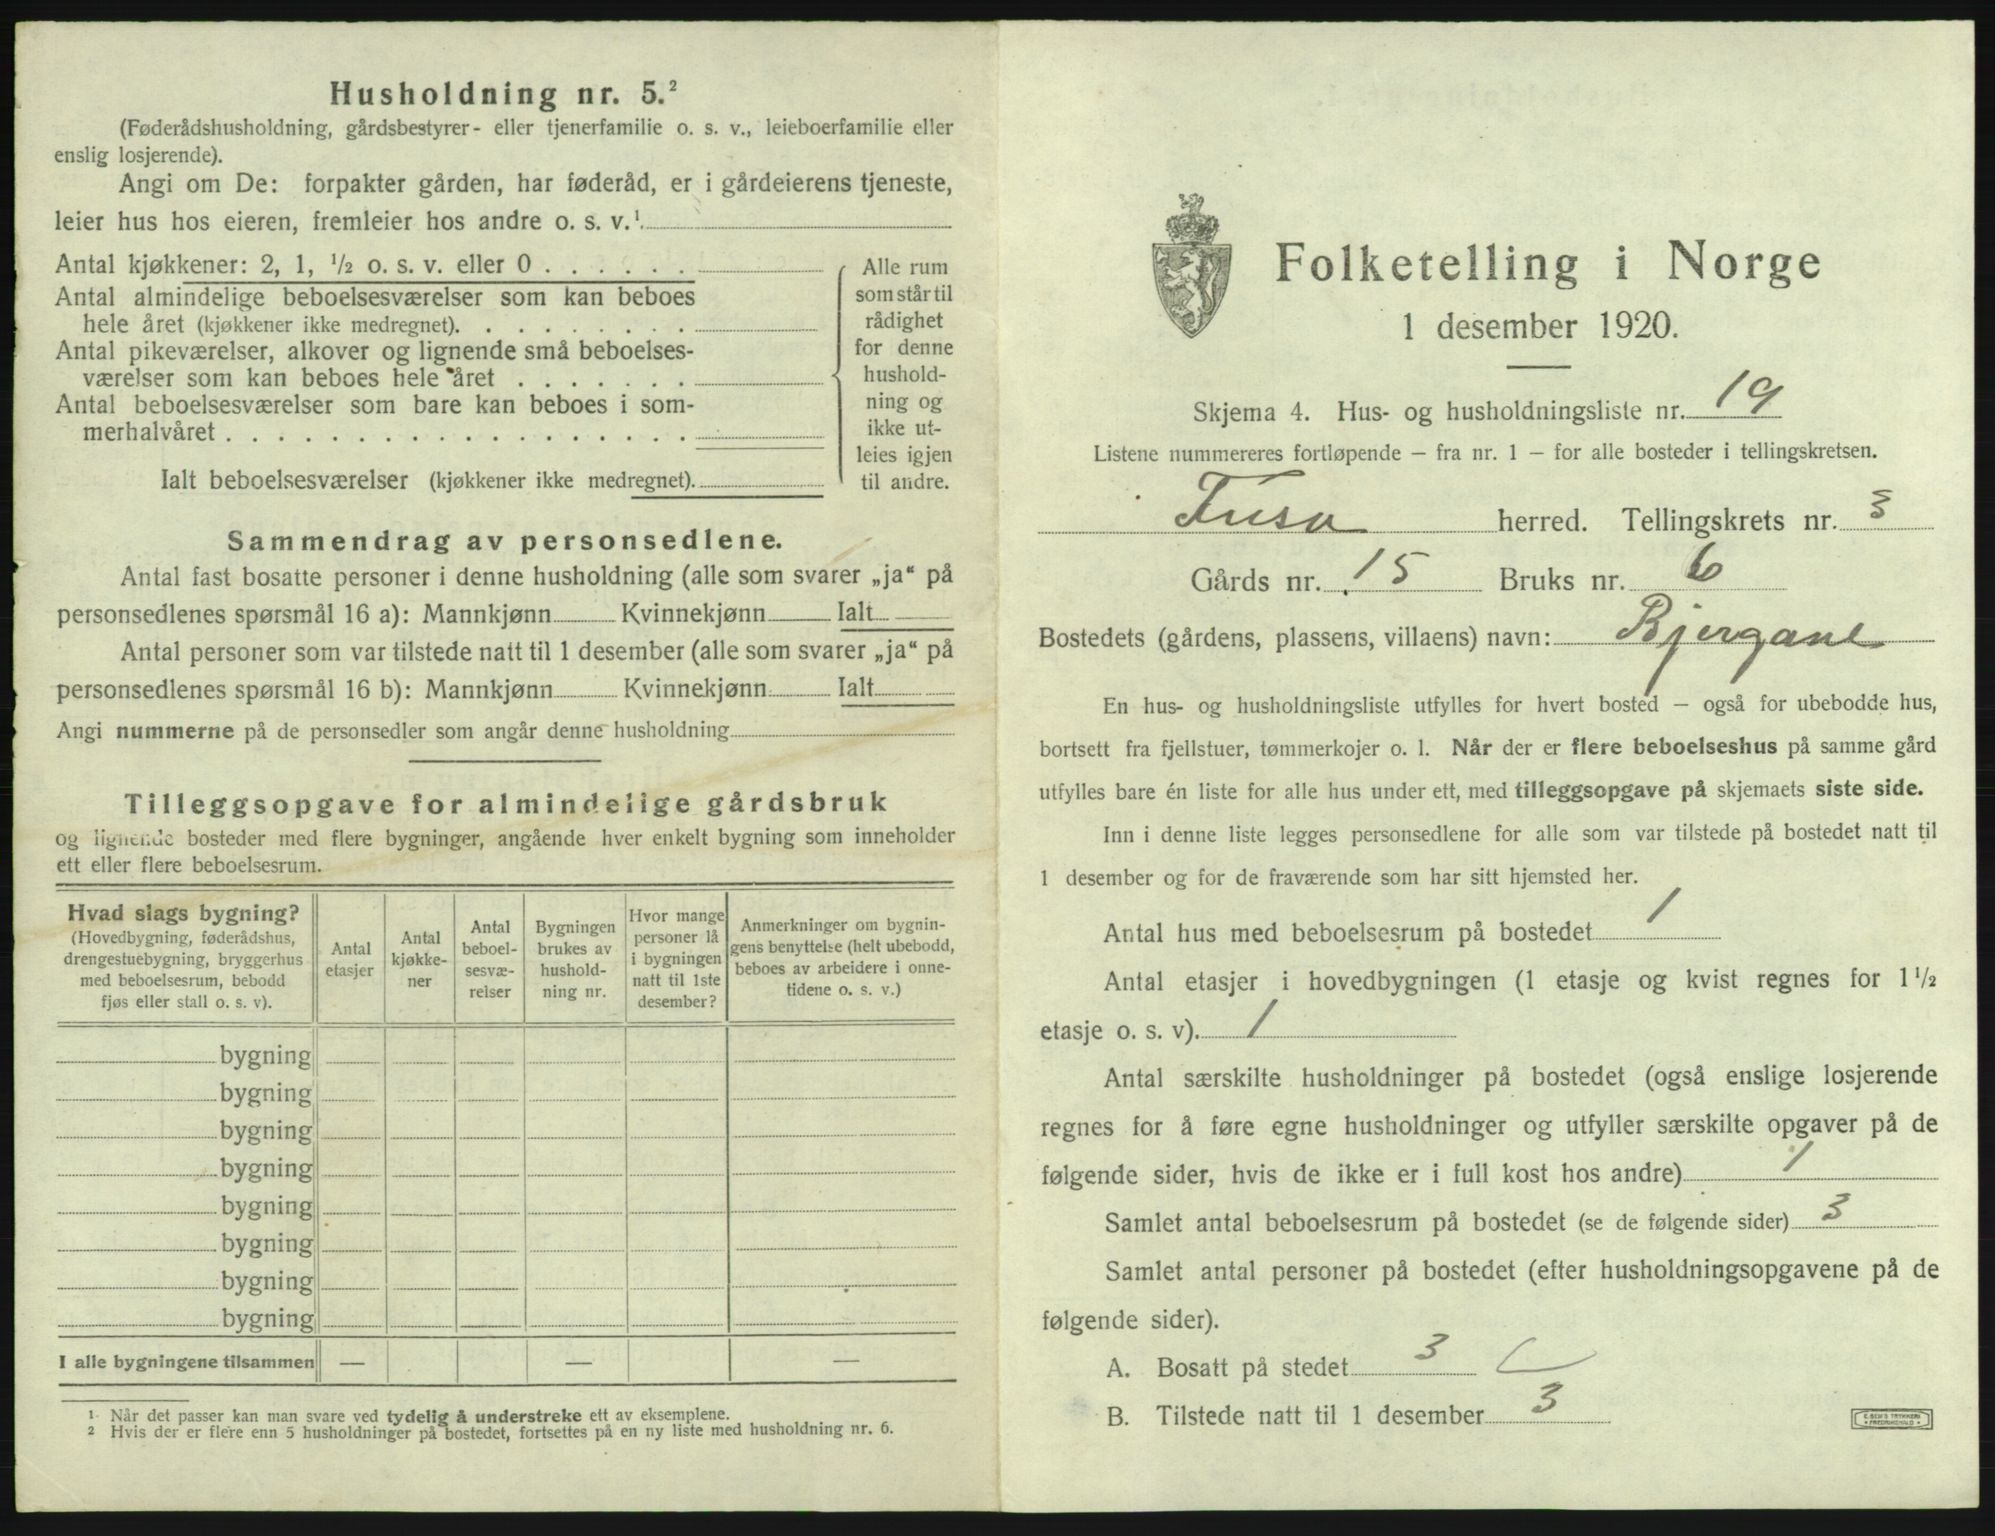 Husholdning nr. 5.²
(Føderådshusholdning, gårdsbestyrer- eller tjenerfamilie o. s. v., leieboerfamilie eller
enslig losjerende).
Angi om De: forpakter gården, har føderåd, er i gårdeierens tjeneste,
leier hus hos eieren, fremleier hos andre o. s. v.¹
Antal kjøkkener: 2, 1, ½ o. s. v. eller 0 . . . . . .
Antal almindelige beboelsesværelser som kan beboes
hele året (kjøkkener ikke medregnet). . . . . . . . .
Antal pikeværelser, alkover og lignende små beboelses-
værelser som kan beboes hele året . . . . . . .
Antal beboelsesværelser som bare kan beboes i som-
merhalvåret . . . . . . . . . . . . . . . . . .
Ialt beboelsesværelser (kjøkkener ikke medregnet).
Alle rum
som står til
rådighet
for denne
hushold-
ning og
ikke ut-
leies igjen
til andre.
Sammendrag av personsedlene.
Antal fast bosatte personer i denne husholdning (alle som svarer „ja“ på
personsedlenes spørsmål 16 a): Mannkjønn Kvinnekjønn Ialt
Antal personer som var tilstede natt til 1 desember (alle som svarer „ja“ på
personsedlenes spørsmål 16 b): Mannkjønn Kvinnekjønn Ialt
Angi nummerne på de personsedler som angår denne husholdning
Tilleggsopgave for almindelige gårdsbruk
og lignende bosteder med flere bygninger, angående hver enkelt bygning som inneholder
ett eller flere beboelsesrum.
Hvad slags bygning?
(Hovedbygning, føderådshus,
drengestuebygning, bryggerhus
med beboelsesrum, bebodd
fjøs eller stall o. s. v).
Antal
etasjer
Antal
kjøkke-
ner
Antal
beboel-
sesvæ-
relser
Bygningen
brukes av
hushold-
ning nr.
Hvor mange
personer lå
i bygningen
natt til 1ste
desember?
Anmerkninger om bygnin-
gens benyttelse (helt ubebodd,
beboes av arbeidere i onne-
tidene o. s. v.)
bygning
bygning
bygning
bygning
bygning
bygning
bygning
bygning
I alle bygningene tilsammen — — —
¹ Når det passer kan man svare ved tydelig å understreke ett av eksemplene.
² Hvis der er flere enn 5 husholdninger på bostedet, fortsettes på en ny liste med husholdning nr. 6.
Folketelling i Norge
1 desember 1920.
Skjema 4. Hus- og husholdningsliste nr. 19
Listene nummereres fortløpende – fra nr. 1 – for alle bosteder i tellingskretsen.
Fusa herred. Tellingskrets nr. 3
Gårds nr. 15 Bruks nr. 6
Bostedets (gårdens, plassens, villaens) navn: Bjergane
En hus- og husholdningsliste utfylles for hvert bosted – også for ubebodde hus,
bortsett fra fjellstuer, tømmerkojer o. l. Når der er flere beboelseshus på samme gård
utfylles bare én liste for alle hus under ett, med tilleggsopgave på skjemaets siste side.
Inn i denne liste legges personsedlene for alle som var tilstede på bostedet natt til
1 desember og for de fraværende som har sitt hjemsted her.
Antal hus med beboelsesrum på bostedet 1
Antal etasjer i hovedbygningen (1 etasje og kvist regnes for 1½
etasje o. s. v). 1
Antal særskilte husholdninger på bostedet (også enslige losjerende
regnes for å føre egne husholdninger og utfyller særskilte opgaver på de
følgende sider, hvis de ikke er i full kost hos andre) 1
Samlet antal beboelsesrum på bostedet (se de følgende sider) 3
Samlet antal personer på bostedet (efter husholdningsopgavene på de
følgende sider).
A. Bosatt på stedet 3
B. Tilstede natt til 1 desember 3